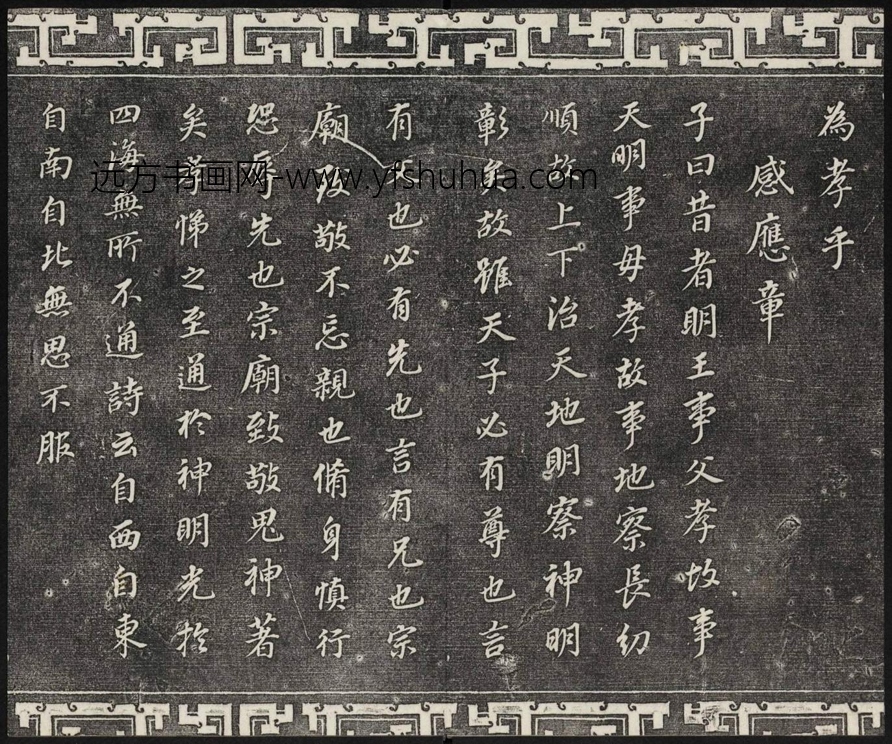 為孝乎
感應章
子曰昔者明王事父孝故事
天明事母孝故事地察長幼
順故上下治天地明察神明
彰矣故雖天子必有尊也言
有父也必有先也言有兄也宗
廟致敬不忘親也脩身慎行
恐辱先也宗廟致敬鬼神著
矣孝悌之至通於神明光於
四海無所不通詩云自西自東
自南自北無思不服
远方书画网-www.yfshuhua.com